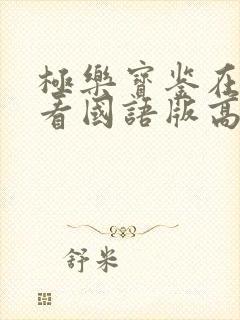 極樂寶鉴在
看國語版高
舒米